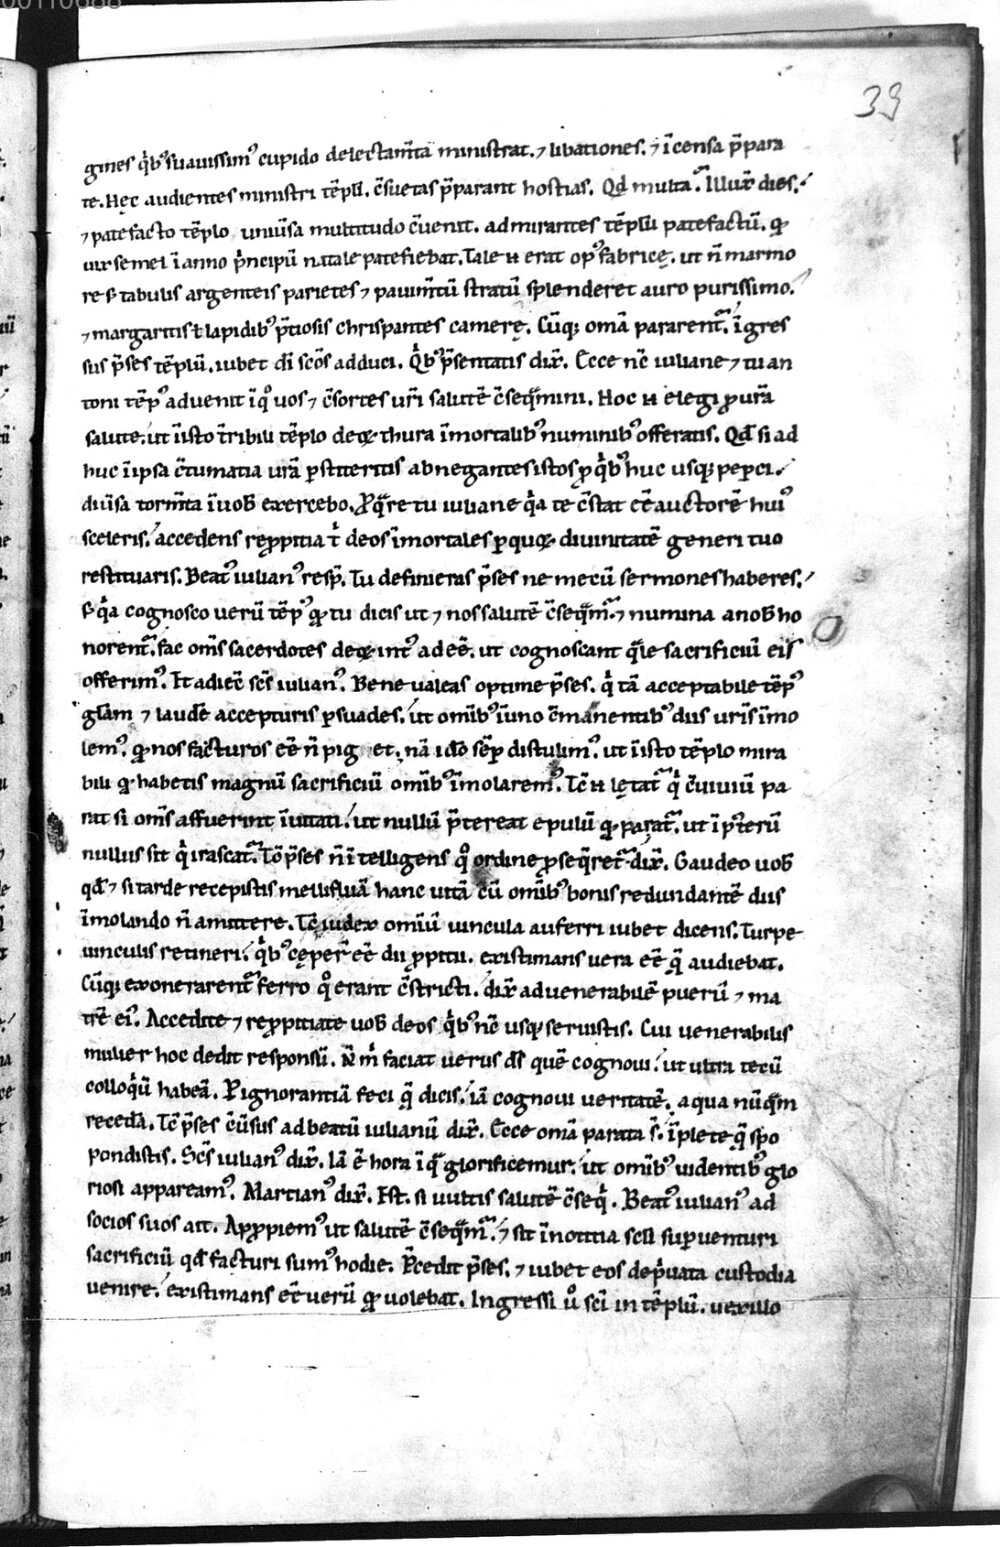 39
gines q̇b᷒ suauissim᷒ cupido delectam̄ta ministrat. ⁊ libationes. ⁊ īcensa p̄para
te. Hęc audientes ministri tēpli. c̄suetas p̄parant hostias. Qd multa. Illux̄ dies.
⁊ patefacto tēplo uniūsa multitudo c̄uenit. admirantes tēplū patefactū. qꝫ
uix semel ī anno p̄ncipū natale patefiebat. Tale n̄ erat op᷒ fabricę. ut n̄ marmo
re s; tabulis argenteis parietes ⁊ pauim̄tū stratū splenderet auro purissimo.
⁊ margaritis ł lapidib᷒ p̄tiosis chrispantes camerę. Cūqꝫ om̄a pararent᷑. īgres
sus p̄ses tēplū. iubet dī sc̄os adduci. Q̇b᷒ p̄sentatis dix̄. Ecce nc̄ iuliane ⁊ tu an
toni tēp᷒ aduenit ī q̊ uos ⁊ c̄sortes ur̄i salutē c̄seq̄mini. Hoc n̄ elegi ꝓ ur̄a
salute. ut īisto t̄ribili tēplo deęqꝫ thura īmortalib᷒ numinib᷒ offeratis. Qd̄ si ad
huc ī ipsa c̄tumatia ur̄a ꝑstiteritis abnegantes istos ꝓ q̇b᷒ huc usqꝫ peꝑci.
diūsa torm̄ta ī uob̄ exercebo. Ꝓqͣre tu iuliane qͥa te c̄stat eē auctorē hui᷒
sceleris. accedens reꝓpitia t̊ deos īmortales ꝑ quęqꝫ diuinitatē generi tuo
restituaris. Beat᷒ iulian᷒ resp̄. Tu definieras p̄ses ne mecū sermones haberes.
s; qͥa cognosco uerū tēp᷒ qꝫ tu dicis ut ⁊ nos salutē c̄seq̄m᷑. ⁊ numina a nob̄ ho
norent᷑. fac om̄s sacerdotes deęqꝫ int᷒ adeē. ut cognoscant qͣle sacrificiū eis
offerim᷒. Et adiec̄ sc̄s iulian᷒. Bene ualeas optime p̄ses. qͥ tā acceptabile tēp᷒
gl̄am ⁊ laudē accepturis ꝑsuades. ut om̄ib᷒ ī uno c̄manentib᷒ diis ur̄is īmo
lem᷒. qꝫ nos facturos eē n̄ pig et. nā id̊ sēꝑ distulim᷒. ut īisto tēplo mira
bili qꝫ habetis magnū sacrificiū om̄ib᷒ īmolarem᷒. Tc̄ n̄ lętat᷑ qͥ c̄uiuiū pa
rat si om̄s affuerint īuitati. ut nullū p̄tereat epulū qꝫ parat᷑. ut ī p̄terū
nullus sit qͥ irascat᷑. Tc̄ p̄ses n̄ ītelligens q̊ ordine ꝓseq̄ret᷑. dix̄. Gaudeo uob̄
qd̄ ⁊ si tarde recepistis mellifluā hanc uitā cū om̄ib᷒ bonis redundantē diis
īmolando n̄ amittere. Tc̄ iudex omīū uincula auferri iubet dicens. Turpe
uinculis retineri. q̇b᷒ cęper̄ eē dii ꝓpitii. existimans uera eē q̄ audiebat.
Cūqꝫ exonerarent᷑ ferro q̊ erant c̄stricti. dix̄ ad uenerabilē puerū ⁊ ma
trē ei᷒. Accedite ⁊ reꝓpitiate uob̄ deos q̇b᷒ nc̄ usqꝫ seruistis. Cui uenerabilis
mulier hoc dedit responsū. N̄ m̊ faciat uerus ds̄ quē cognoui. ut ultra tecū
colloq̇ū habeā. P ignorantiā feci q̄ dicis. iā cognoui ueritatē. a qua nūqͣm
recedā. Tc̄ p̄ses c̄ūsus ad beatū iulianū dix̄. Ecce om̄a parata s̄. īplete q̄ spo
pondistis. Sc̄s iulian᷒ dix̄. Iā ē hora ī qͣ glorificemur. ut om̄ib᷒ uidentib᷒ glo
riosi appaream᷒. Martian᷒ dix̄. Est. si uultis salutē c̄seqͥ. Beat᷒ iulian᷒ ad
socios suos ait. Apꝓpiem᷒ ut salutē c̄seq̄m᷑. ⁊ sit ī notitia sc̄li suꝑuenturi
sacrificiū qd̄ facturi sum᷒ hodie. P̄cedit p̄ses. ⁊ iubet eos dep̄uata custodia
uenire. existimans eē uerū qꝫ uolebat. Ingressi ů sc̄i in tēplū. uexillo